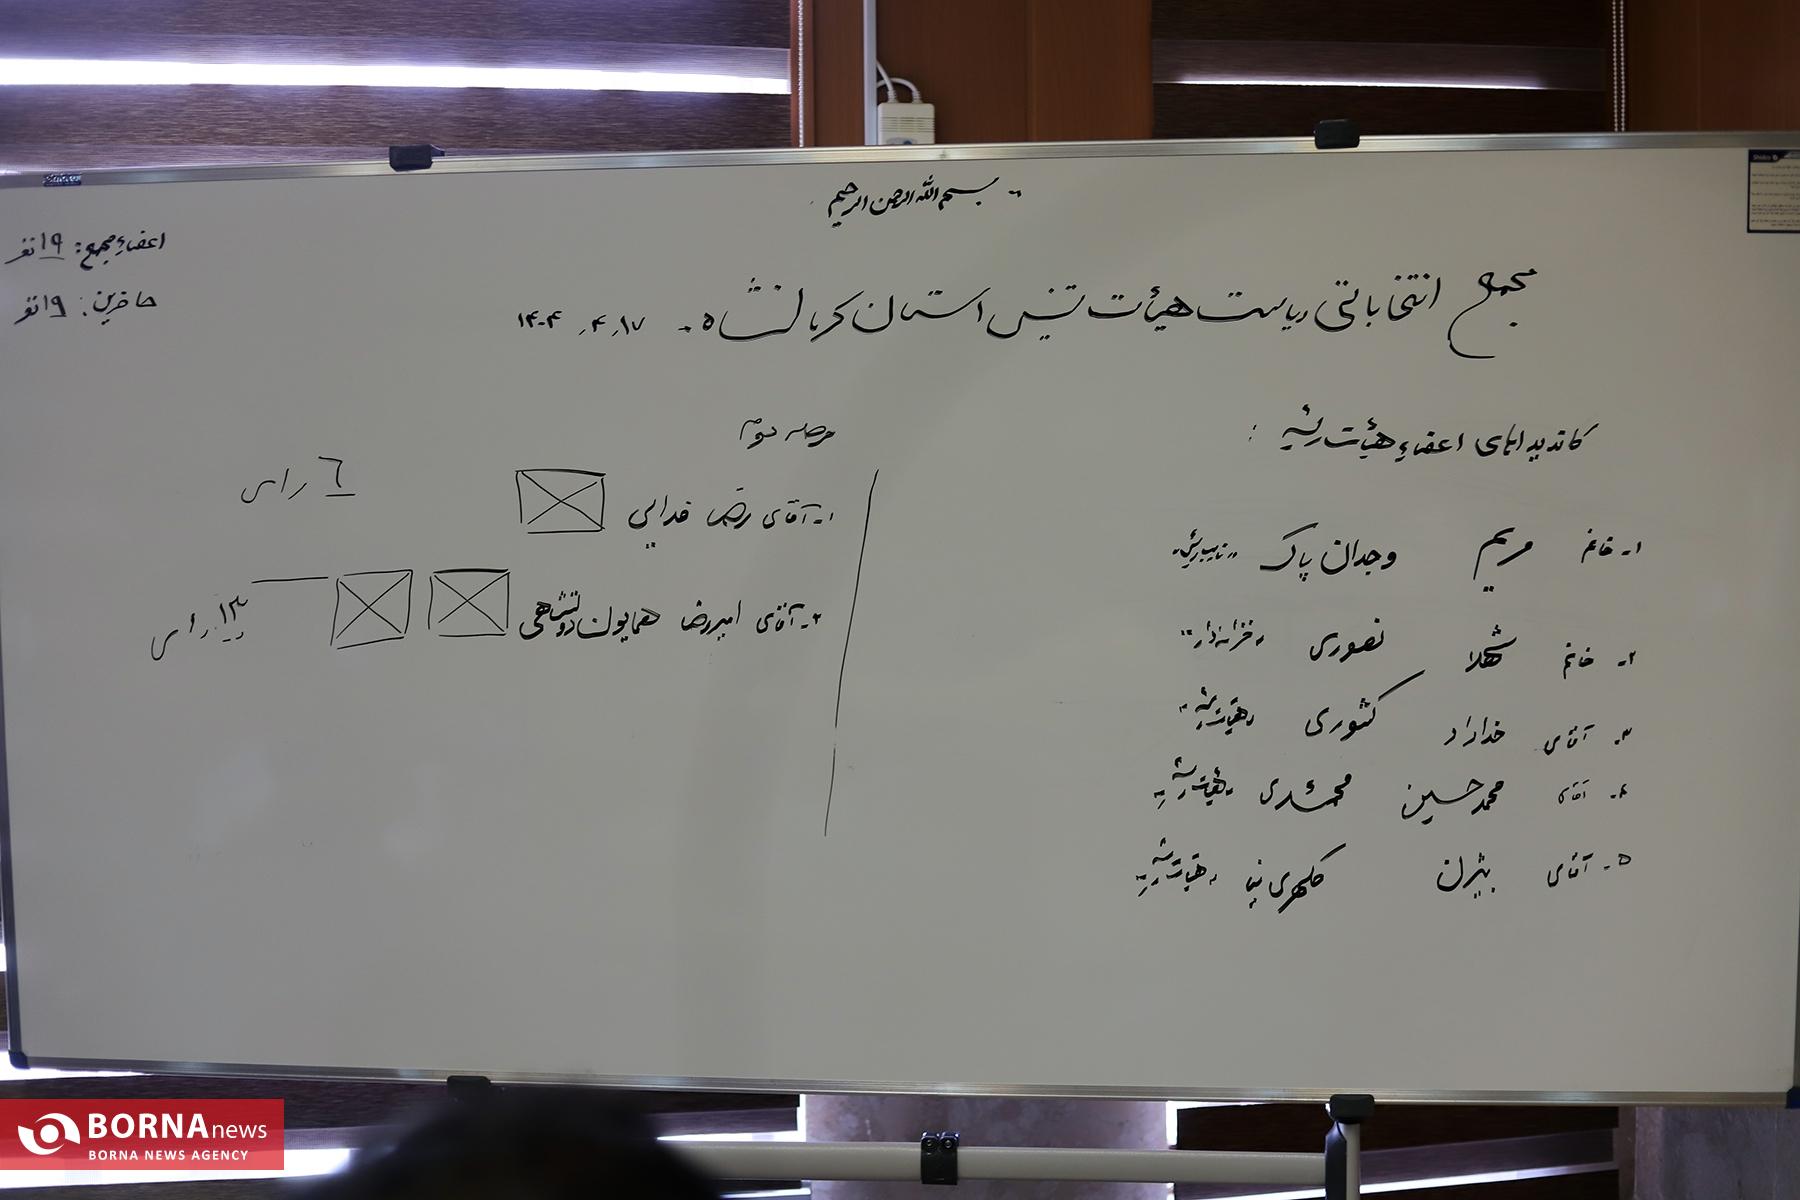 بسم الله الرحمن الرحیم
اعضاء مجمع: ۱۹ نفر
حاضرین: ۱۹ نفر
مجمع انتخاباتی ریاست هیأت تنیس استان کرمانشاه - ۱۴۰۴/۴/۱۷
کاندیداهای اعضاء هیأت رئیسه :
۱- خانم مریم وجدان پاک "نایب رئیس"
۲- خانم شهلا نصوری "خزانه دار"
۳- آقای خداداد کشوری "هیأت رئیسه"
۴- آقای محمدحسین محمدی "هیأت رئیسه"
۵- آقای بیژن کلهری نیا "هیأت رئیسه"
مرحله دوم
۱- آقای رضا فدایی ۶ رای
۲- آقای امیررضا همایون ۱۳ رای
BORNA news
BORNA NEWS AGENCY